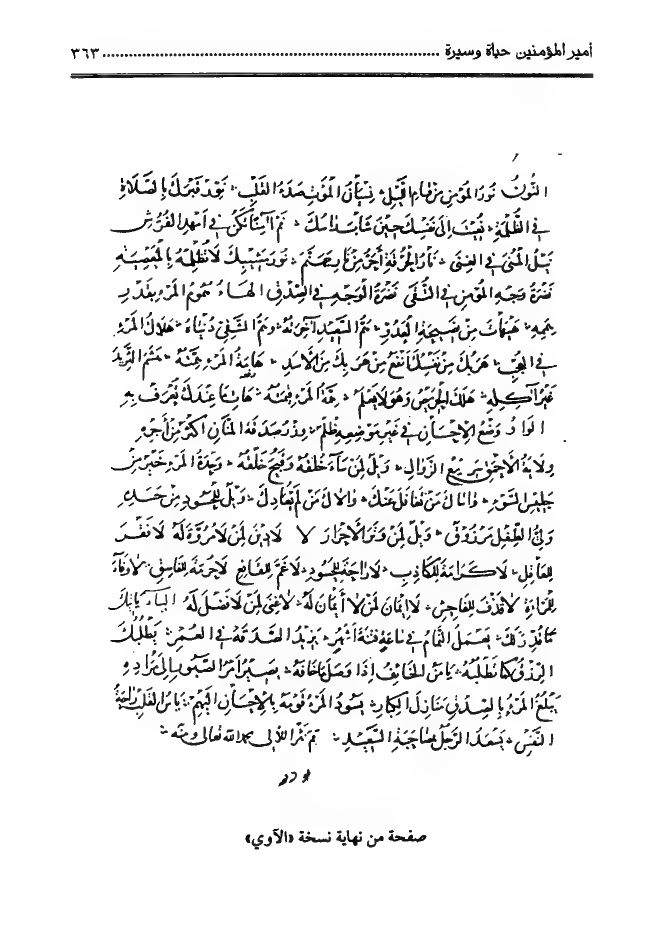 أمير المؤمنين حياة وسيرة ........................................................ ٣٦٣
النون نور المؤمن من قيام الليل نسيان الموت صدء القلب نور قبرك بالصلاة
في الظلم نعيت إلى نفسك حين شاب رأسك نم آمنا تكن في أمهد الفرش
نيل المنى في الغنى نار الفرقة أحر من نار جهنم نور شيبك لا تظلمه بالمعصية
نضرة وجه المؤمن في التقى نضرة الوجه في الصدق الهاء هموم المرء بقدر
همه هيهات من نصيحة العدو هم السعيد آخرته وهم الشقي دنياه هلاك المرء
في العجب هربك من نفسك أنفع من هربك من الأسد همة المرء قيمته هشم الثريد
غير آكله هلك الحريص وهو لا يعلم همة المرء هات ما عندك تعرف به
الواو وضع الإحسان في غير موضعه ظلم وزر صدقة المنان أكثر من أجره
ولاية الأحمق سريع الزوال ويل لمن ساء خلقه وقبح خلقه وحدة المرء خير من
جليس السوء واساك من تغافل عنك والاك من لم يعادك ويل للحسود من حسده
ولي الطفل مرزوق ويل لمن وتر الأحرار لا لا دين لمن لا مروة له لا فقر
للعاقل لا كرامة للكاذب لا راحة للحسود لا غم للقانع لا حرمة للفاسق لا وفاء
للمراة لا للفاحش لا إيمان لمن لا أمان له لا غنى لمن لا فضل له الياء يأتيك
ما قدر لك يعمل النمام في ساعة فتنة أشهر يزيد الصدقة في العمر يطلبك
الرزق كما تطلبه يأمن الخائف إذا وصل ما خافه يصير أمر الصبور إلى مراده
يبلغ المرء بالصدق منازل الكبار يسود المرء قومه بالإحسان إليهم يأس القلب راحة
النفس يسعد الرجل بمصاحبة السعيد تم نثر اللآلي بحمد الله تعالى ومنه
صفحة من نهاية نسخة «الآوي»